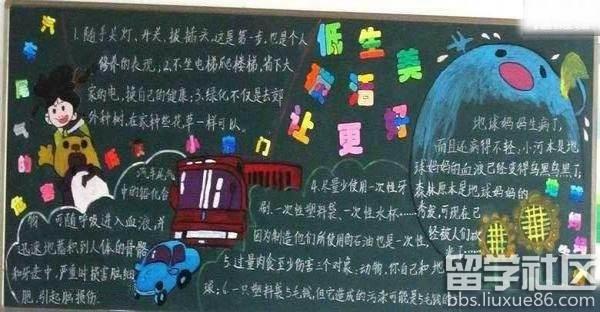 低碳生活
让美更好
1.随手关灯、开关、拔插头,这是第一步,也是个人
修养的表现;2.不坐电梯爬楼梯,省下大
家的电,换自己的健康;3.绿化不仅是去郊
外种树,在家种些花草一样可以。
汽车尾气
的危害
低碳小窍门
汽车尾气
中的铅化合
物可随呼吸进入血液,并
迅速地蓄积到人体的骨骼
和牙齿中,严重时损害脑细
胞,引起脑损伤.
4.尽量少使用一次性牙
刷、一次性塑料袋、一次性水杯……
因为制造他们所使用的石油也是一次性
5.过量肉食至少伤害三个对象:动物、你自己和地
球;6.一只塑料袋5毛钱,但它造成的污染可能是5毛钱的
地球妈妈生病了,
而且还病得不轻,小河本是地
球妈妈的血液已经变得乌黑乌黑了;
森林原本是地球妈妈的
秀发,可现在已
经被人们
妈妈
留学社区
bbs.liuxue86.com